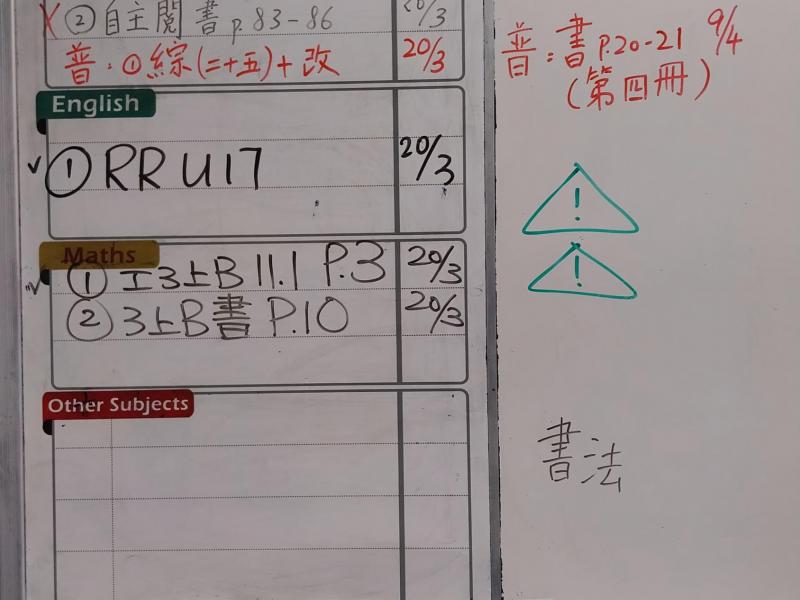 ✗ ② 自主閱書 p.83-86 20/3
普：① 綜(二十五)+改 20/3
English
✓ ① RR U17 20/3
Maths
✓ ① 工3上B 11.1 P.3 20/3
② 3上B書 P.10 20/3
Other Subjects
普：書 P.20-21 9/4
(第四冊)
!
!
書法